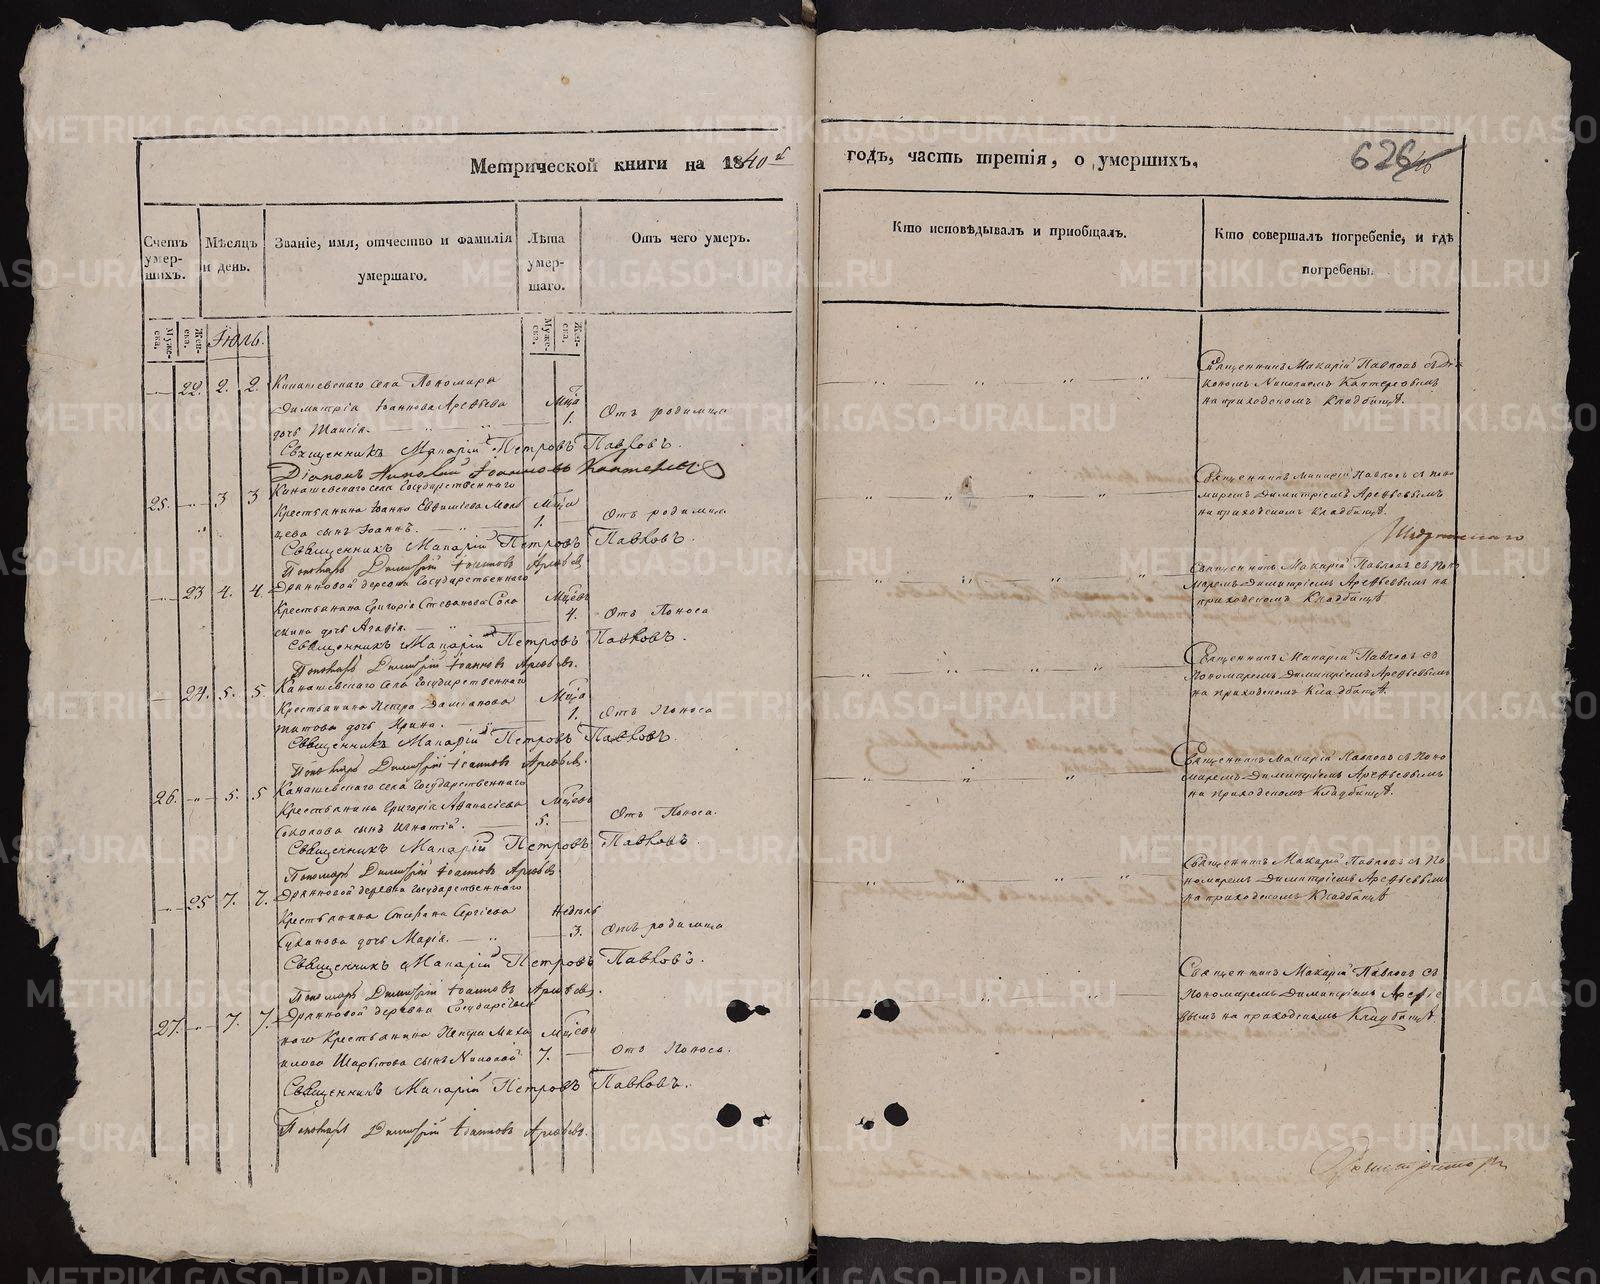 Метрической книги на 1840 й
годъ, часть третія, о умершихъ.
626
Счетъ умер-шихъ.
Мѣсяцъ и день.
Званіе, имя, отчество и фамилія умершаго.
Лѣта умер-шаго.
Отъ чего умеръ.
Кто исповѣдывалъ и приобщалъ.
Кто совершалъ погребеніе, и гдѣ погребены.
Муже-ска.
Жен-ска.
Іюль.
Муже-ска.
Жен-ска.
22. 2. 2. Канашевскаго села Пономаря
Димитрія Іоаннова Арефьева Мца
дочь Таисія. 1. Отъ родимца
Священникъ Макарій Петровъ Павловъ.
Діаконъ Николай Іоанновъ Каптеревъ
Священникъ Макарій Павловъ съ Діа
кономъ Николаемъ Каптеревымъ
на приходскомъ Кладбищѣ.
25. 3 3 Канашевскаго села Государственнаго
Крестьянина Іоанна Евфиміева Мца
цева сынъ Іоаннъ. 1. Отъ родимца
Священникъ Макарій Петровъ Павловъ.
Пономарь Димитрій Іоанновъ Арефьевъ.
Священникъ Макарій Павловъ съ Поно
маремъ Димитріемъ Арефьевымъ
на приходскомъ Кладбищѣ.
23 4. 4. деревни Государственнаго
Крестьянина Григорія Стефанова Мцевъ
дочь Агафія. 4. Отъ Поноса
Священникъ Макарій Петровъ Павловъ.
Пономарь Димитрій Іоанновъ Арефьевъ.
Священникъ Макарій Павловъ съ Поно
маремъ Димитріемъ Арефьевымъ на
приходскомъ Кладбищѣ
24. 5. 5. Канашевскаго села Государственнаго
Крестьянина Петра Даміанова Мца
Титова дочь Ирина. 1. Отъ Поноса
Священникъ Макарій Петровъ Павловъ.
Пономарь Димитрій Іоанновъ Арефьевъ.
Священникъ Макарій Павловъ съ
Пономаремъ Димитріемъ Арефьевымъ
на приходскомъ Кладбищѣ.
26. 5. 5 Канашевскаго села Государственнаго
Крестьянина Григорія Афанасіева Мцевъ
Соколова сынъ Игнатій. 5. Отъ Поноса.
Священникъ Макарій Петровъ Павловъ.
Пономарь Димитрій Іоанновъ Арефьевъ.
Священникъ Макарій Павловъ съ Поно
маремъ Димитріемъ Арефьевымъ
на приходскомъ Кладбищѣ.
25 7. 7. деревни Государственнаго
Крестьянина Стефана Сергіева Недѣль
Суханова дочь Марія. 3. Отъ родимца
Священникъ Макарій Петровъ Павловъ.
Пономарь Димитрій Іоанновъ Арефьевъ.
Священникъ Макарій Павловъ съ По
номаремъ Димитріемъ Арефьевымъ
на приходскомъ Кладбищѣ
27. 7. 7. деревни Государствен
наго Крестьянина Петра Миха Мцевъ
илова сынъ Николай 7. Отъ Поноса.
Священникъ Макарій Петровъ Павловъ.
Пономарь Димитрій Іоанновъ Арефьевъ.
Священникъ Макарій Павловъ съ
Пономаремъ Димитріемъ Арефье
вымъ на приходскомъ Кладбищѣ.
METRIKI.GASO-URAL.RU